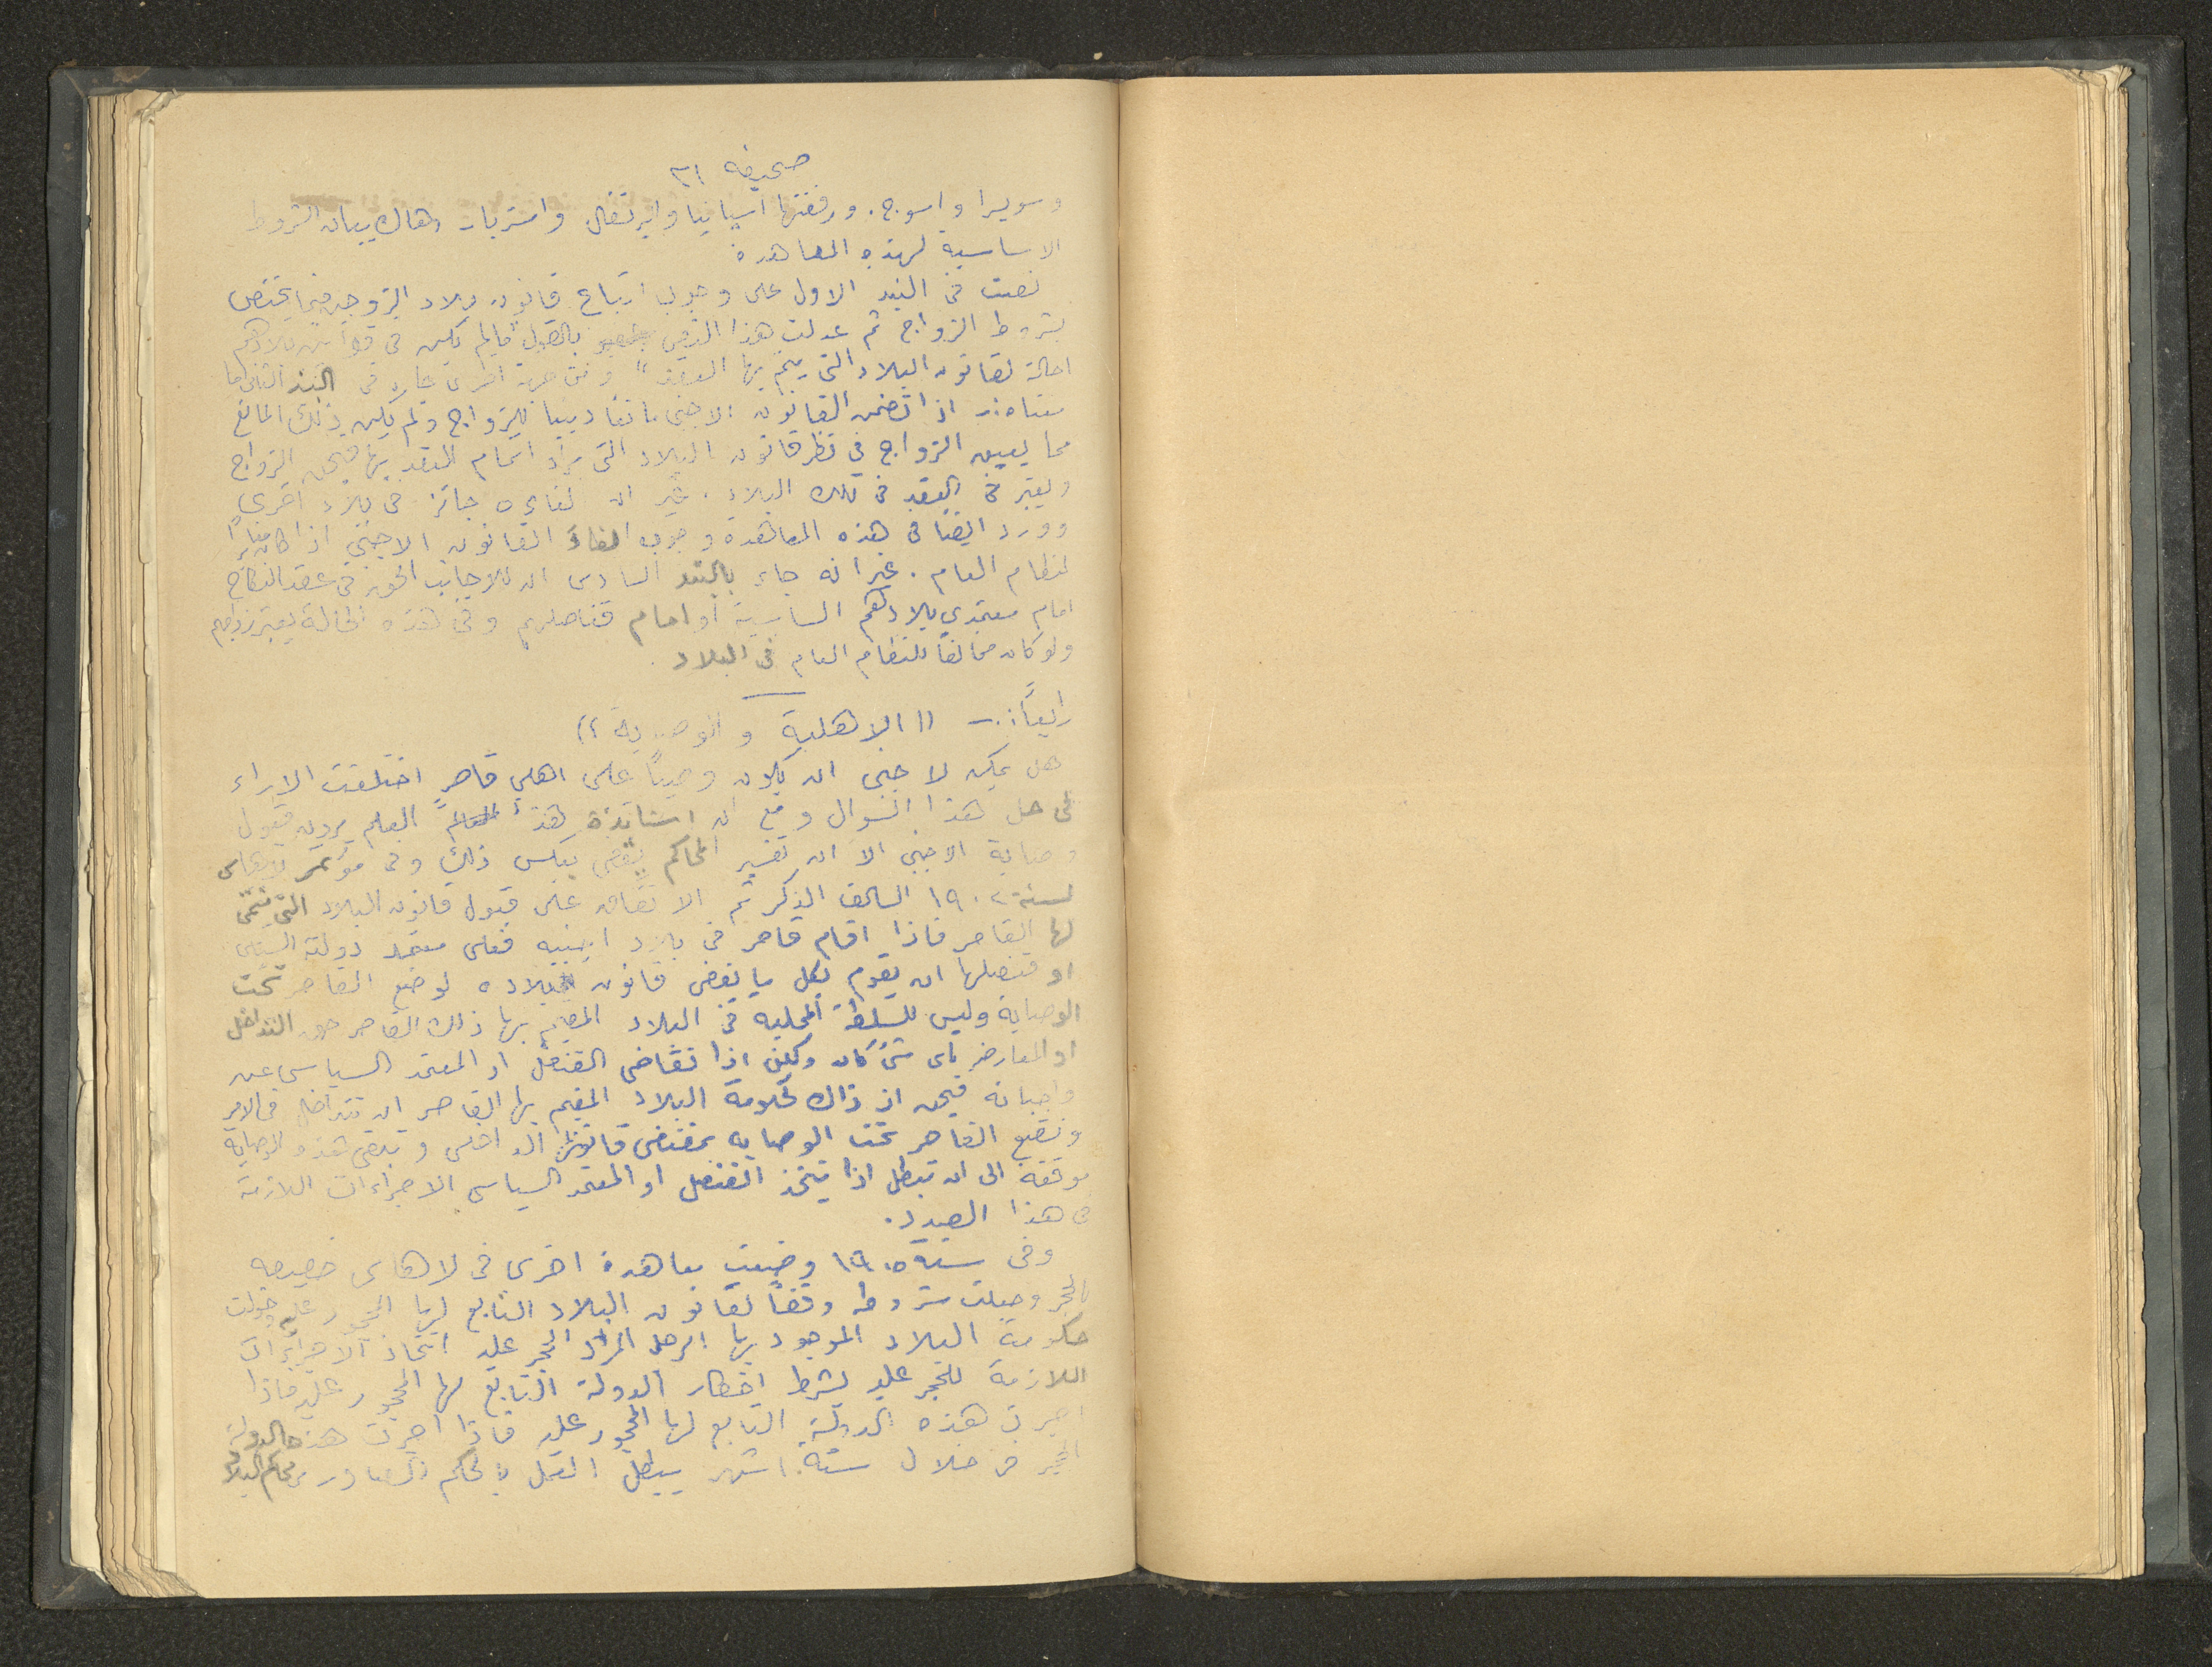 صحيفه ٣١
وسويسرا واسوج. ورفضتها اسبانيا والبرتغال وهاك بيان الشروط
الاساسية لهذه المعاهدة
نصت فى البند الاول على وجوب اتباع قانون بلاد الزوجين فيما يختص
بشروط الزواج ثم عدلت هذا النص بالقول "ما لم يكن فى قوانين بلادهم
احالة لقانون البلاد التى يتم بها العقد" ومن جهة اخرى جاء فى البند الثانى ما
معناه :ـ اذا تضمن القانون الاجنبى مانعاً دينيا للزواج ولم يكن ذلك المانع
مما يعيب الزواج في نظر قانون البلاد التى يراد اتمام العقد بها فيصح الزواج
ويعتبر العقد فى تلك البلاد. غير ان جائز فى بلاد اخرى
وورد ايضاً فى هذه المعاهدة وجوب الغاء القانون الاجنبي اذا كان مغايراً
لنظام العام. غير انه جاء بالبند السادس ان للاجانب الحق فى عقد النكاح
امام معتمدي بلادهم السياسية او امام قناصلهم وفى هذه الحالة يعتبر زواجهم
ولو كان مخالفاً للنظام العام فى البلاد.
رابعاً :ـ ((الاهلية والوصاية))
هل يمكن لاجنبى ان يكون وصياً على اهلي قاصرٍ اختلفت الاراء
فى حل هذا السوال ومع ان اساتذة هذا العلم يرون قبول
وصاية الاجنبى الا ان المحاكم يقضى بعكس ذلك وفى مؤتمر لاهاى
لسنة ١٩٠٢ السالف الذكر تم الاتفاق على قبول قانون البلاد التى ينتمى
لها القاصر فاذا اقام قاصر فى بلاد اجنبيه فعلى معتمد دولته السياسى
او قنصلها ان يقوم بكل ما يقضى قانون بلاده لوضع القاصر تحت
الوصاية وليس للسلطة المحليه فى البلاد المقيم بها ذلك القاصر حق التداخل
او المعارضه باى شئ كان ولكن اذا تغاضى القنصل او المعتمد السياسى عن
واجباته فيحق اذ ذاك لحكومة البلاد المقيم بها القاصر ان تتداخل فى الامر
وتضع القاصر تحت الوصايه بمقتضى قانونها الداخلى وتبقى هذه الوصاية
موقته الى ان تبطل اذا يتخذ القنصل او المعتمد السياسى الاجراءات اللازمة
فى هذا الصدد.
وفى سنة ١٩٠٥ وضعت معاهدة اخرى فى لاهاى خصيصه
بالحجر وجعلت شروطه وفقاً لقانون البلاد التابع لها المحجور عليه وخولت
حكومة البلاد الموجود بها الرجل المراد الحجر عليه اتخاذ الاجراءات
اللازمة للحجر عليه بشرط اخطار الدولة التابع لها المحجور عليه فاذا
اجرت هذه الدولة التابع لها المحجور عليه فاذا اجرت هذه الدولة
الحجر فى خلال ستة اشهر يبطل العمل بالحكم الصادر من محاكم البلاد